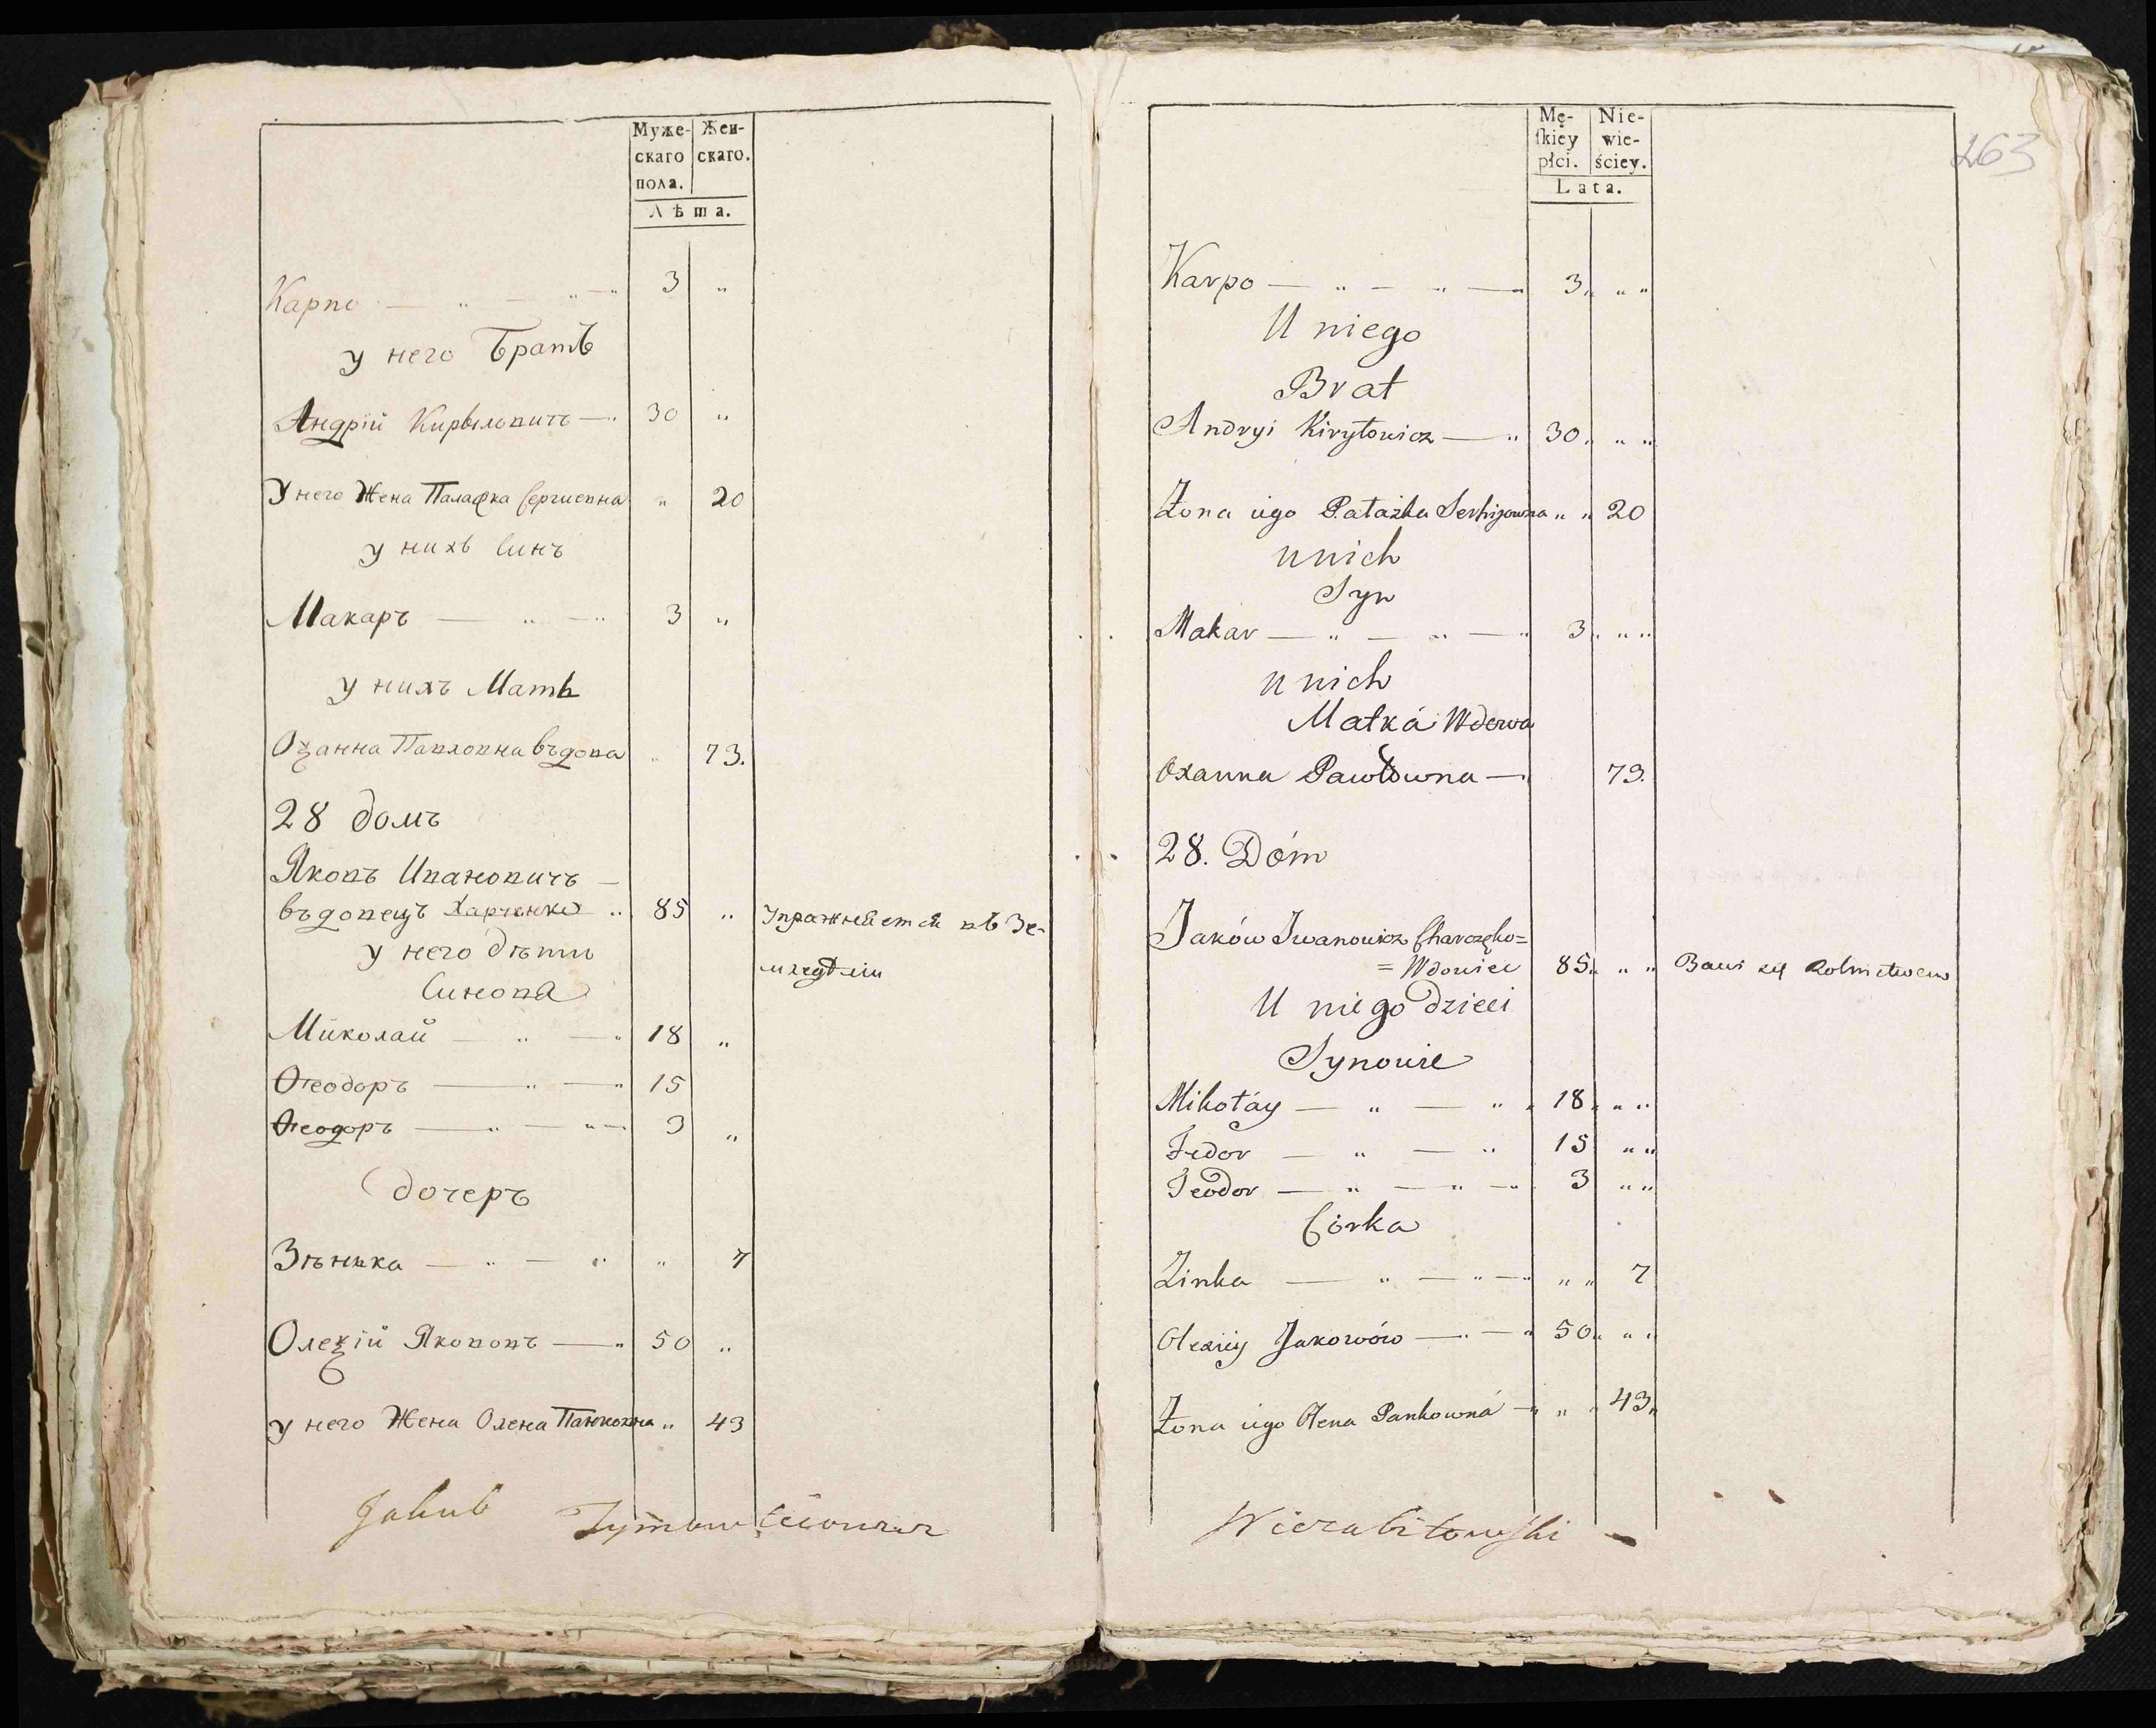 Муже- Жен-
скаго скаго.
пола.
Лѣта.
Карпо — „ — „ — „ 3 „
у него Братъ
Андрій Кирыловичъ — „ 30 „
У него Жена Палажка Сергиевна „ 20
у нихъ Синъ
Макаръ — „ — „ 3 „
у нихъ Мать
Оѯанна Павловна въдова „ 73.
28 домъ
Яковъ Ивановичъ —
въдовецъ Харченко „ 85 „ Упражняется въ Зе-
у него дѣти
мледѣліи
Синовя
Миколай — „ — „ 18 „
Ѳеодоръ — „ — „ 15
Ѳеодоръ — „ — „ — 3 „
дочеръ
Зѣнька — „ — „ „ 7
Олеѯій Якововъ — „ 50 „
у него Жена Олена Панковна „ 43
Jakub
263
Mę- Nie-
ſkiey wie-
płci. ściey.
Lata.
Karpo — „ — „ — „ 3 „ „ „
U niego
Brat
Andryi Kiryłowicz — „ 30 „ „ „
Żona iego Pałażka Serhijowna „ „ 20
u nich
Syn
Makar — „ — „ — „ 3 „ „ „
u nich
Matká Wdowa
Oxanna Pawłowna — „ 73.
28. Dóm
Jaków Iwanowicz Charczęko=
= Wdowiec 85 „ „ „ Bawi się Rolnictwem
U niego dzieci
Synowie
Mikołáy — „ — „ „ 18 „ „ „
Fedor — „ — „ 15 „ „
Teodor — „ — „ — „ 3 „ „
Córka
Zinka — „ — „ — „ „ „ 7
Olexiiy Jakowów — „ — „ 50 „ „ „
Żona iego Olena Pankowná — „ „ „ 43 „